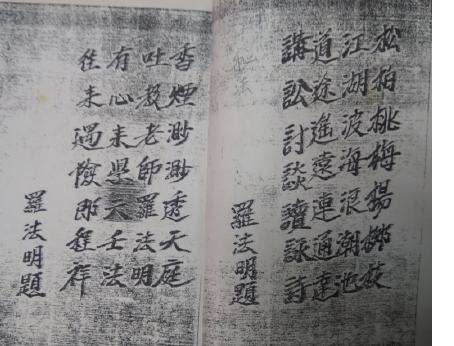 松柏桃梅楊柳枝
江湖波海浪潮池
道途遙遠連通達
講訟討談讀詠詩
羅法明題
香煙渺渺透天庭
吐教老師羅法明
有心来學六壬法
往来遇險即程祥
羅法明題